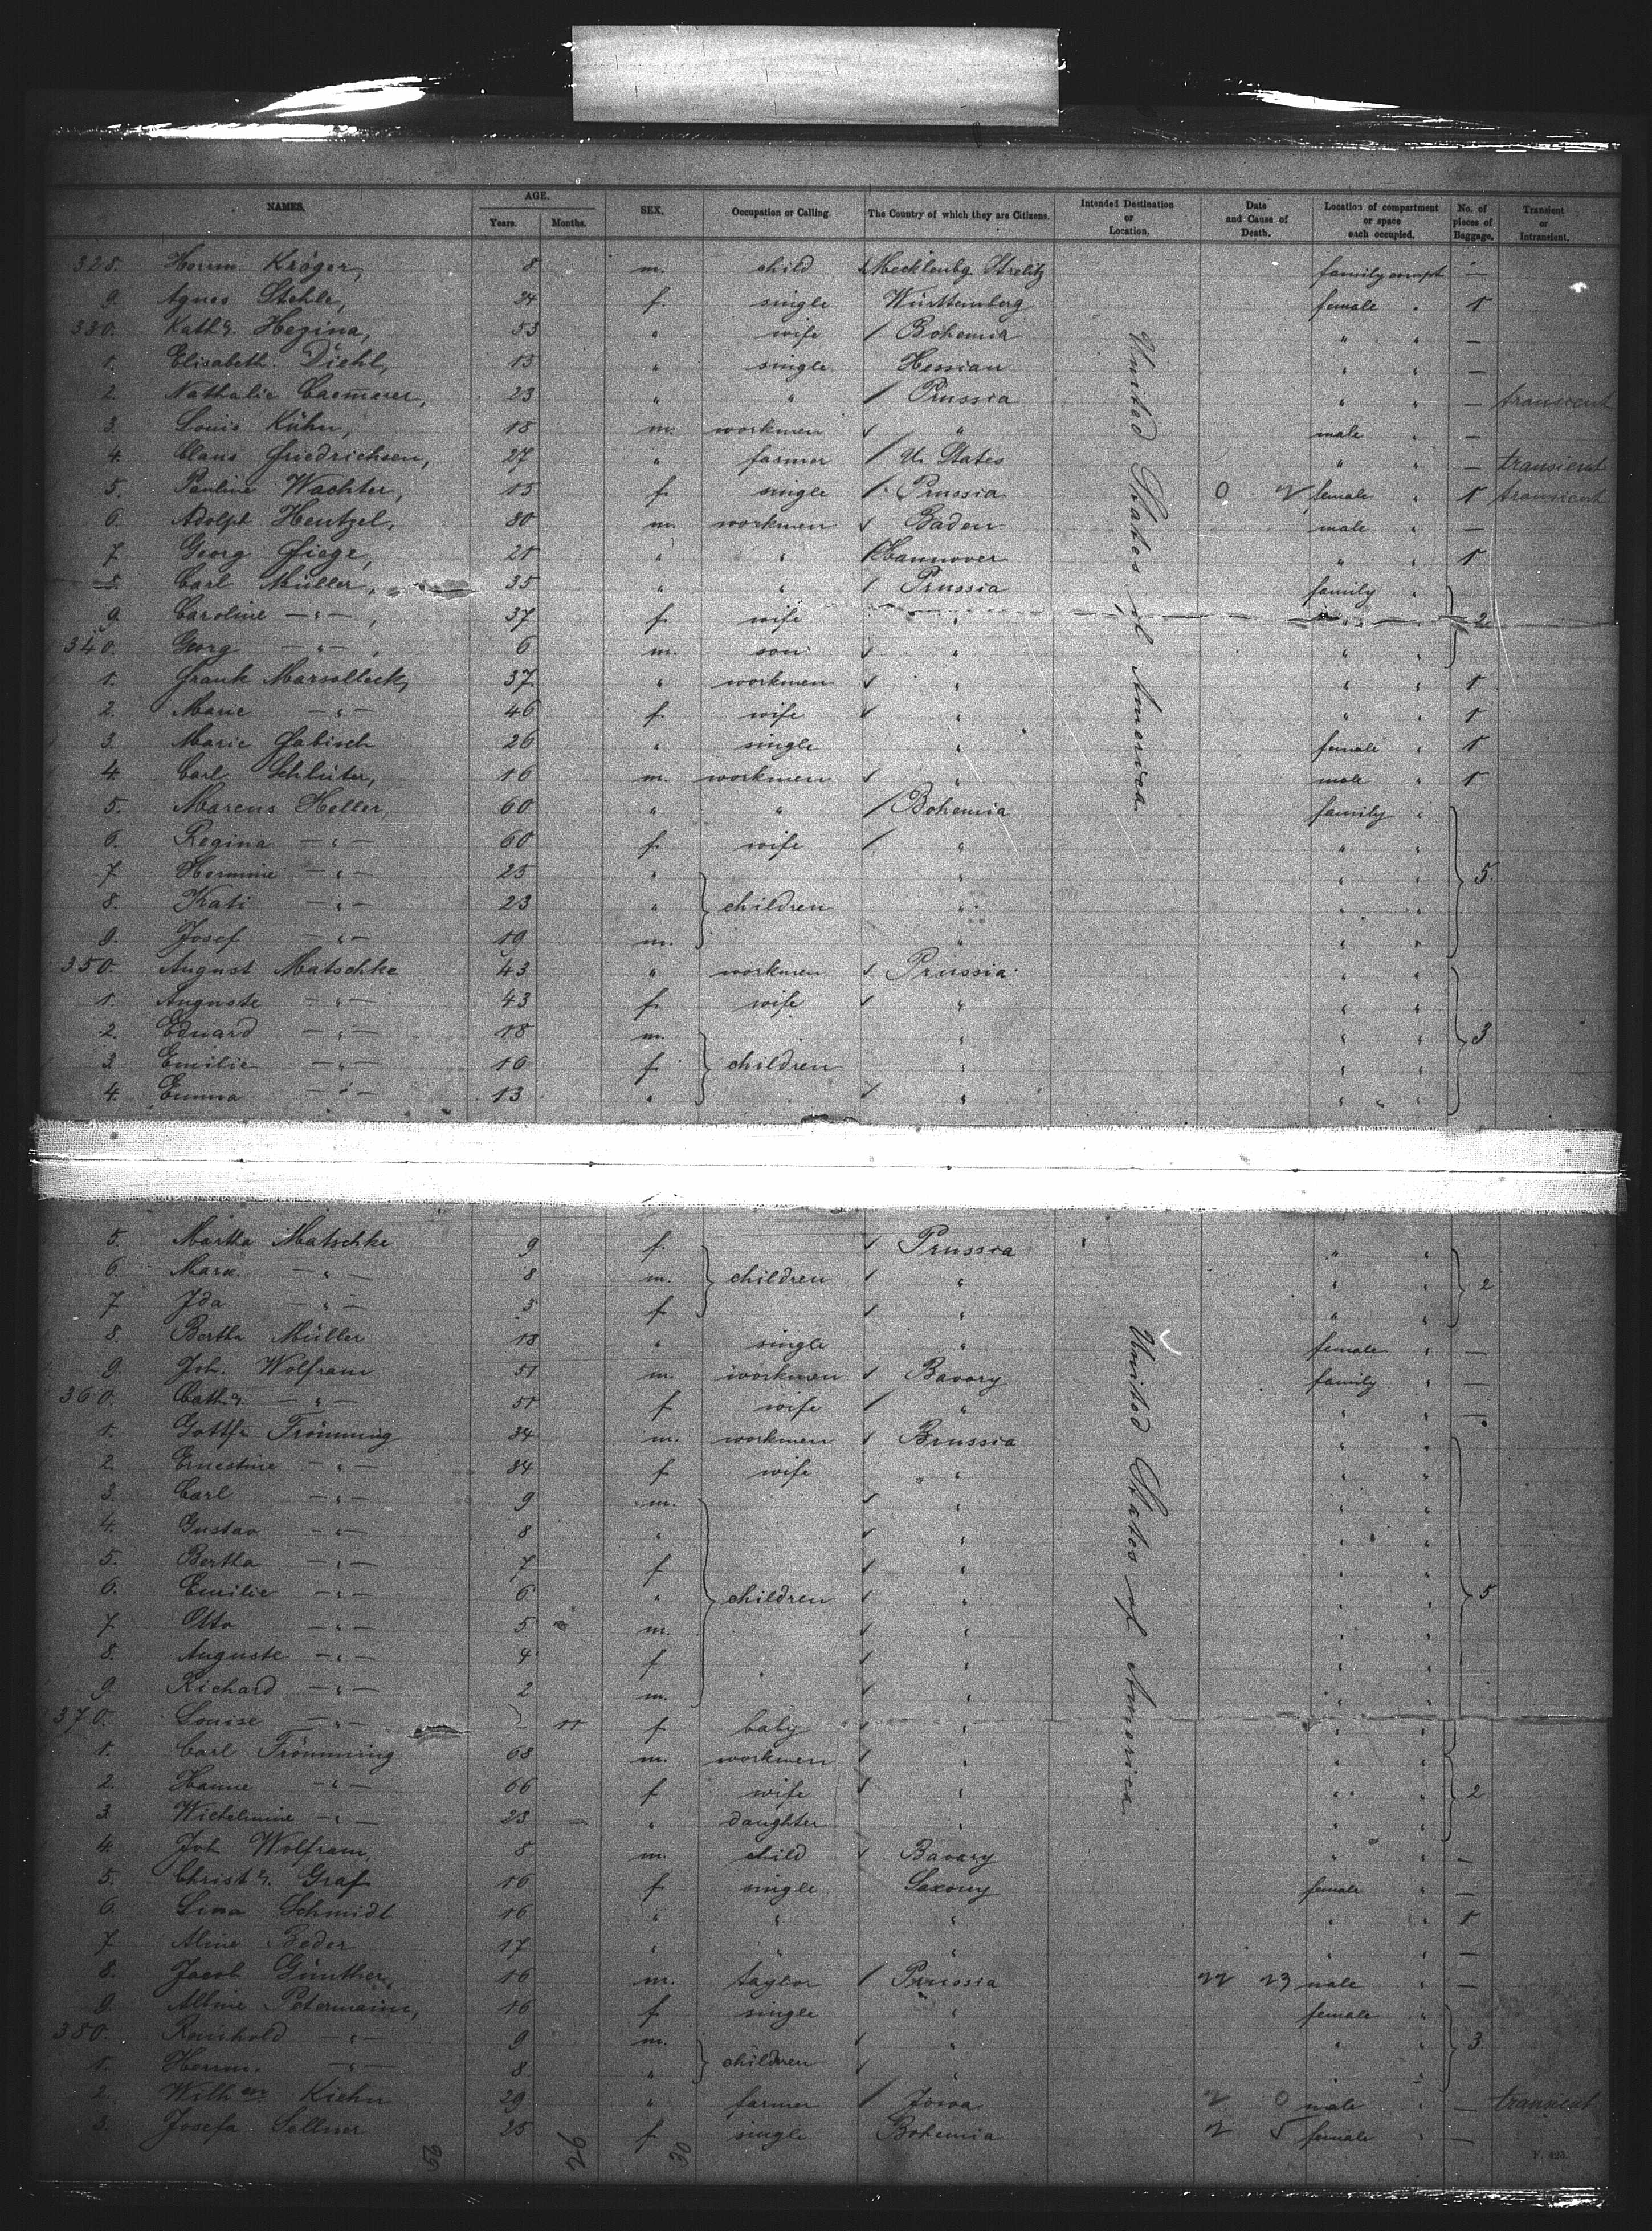 NAMES. AGE. Years. Months. SEX. Occupation or Calling. The Country of which they are Citizens. Intended Destination or Location. Date and Cause of Death. Location of compartment or space each occupied. No. of pieces of Baggage. Transient or Intransient.
328. Herrm. Kröger, 8 m. child Mecklenbg Strelitz family compt —
9. Agnes Stehle, 24 f. single Württemberg female " 1
330. Kath. Hezina, 53 " wife / Bohemia " " —
1. Elisabeth Diehl, 13 " single Hessian " " —
2. Nathalie Caemerer, 23 " " / Prussia " " — transient
3. Louis Kühn, 18 m. workmen √ " male " —
4. Claus Friedrichsen, 27 " farmer / U. States " " — transient
5. Pauline Wachter, 15 f. single / Prussia female " 1 transient
6. Adolph Hentzel, 30 m. workmen √ Baden male " —
7. Georg Fiege, 21 " " / Hannover " " 1
8. Carl Müller, 35 " " / Prussia family "
9. Caroline — " —, 37 f. wife " " " 2
340. Georg — " —, 6 m. son √ " " "
1. Frank Marsolleck, 37 " workmen √ " " " 1
2. Marie — " — 46 f. wife √ " " " 1
3. Marie Fabisch 26 " single " female " 1
4. Carl Schlüter, 16 m. workmen √ " male " 1
5. Marcus Heller, 60 " " / Bohemia family "
6. Regina — " — 60 f. wife / " " "
7. Hermine — " — 25 " " " " 5.
8. Kati — " — 23 " children " " "
9. Josef — " — 19 m. " " "
350. August Matschke 43 " workmen √ Prussia " "
1. Auguste — " — 43 f. wife √ " " "
2. Eduard — " — 18 m. " " " 3
3. Emilie — " — 16 f. children " " "
4. Emma — " — 13 " √ " " "
5. Martha Matschke 9 f. √ Prussia " "
6. Marx — " — 8 m. children √ " " " 2
7. Ida — " — 3 f. √ " " "
8. Bertha Müller 18 " single " female " —
9. Joh. Wolfram 51 m. workmen √ Bavary family " —
360. Cath. — " — 51 f. wife / " " " —
1. Gottfr. Frömming 34 m. workmen √ Brussia " "
2. Ernestine — " — 34 f. wife " " "
3. Carl — " — 9 m. √ " " "
4. Gustav — " — 8 " √ " " "
5. Bertha — " — 7 f. √ " " "
6. Emilie — " — 6 " children √ " " " 5
7. Otto — " — 5 m. √ " " "
8. Auguste — " — 4 f √ " " "
9. Richard — " — 2 m. √ " " "
370. Louise — " — 11 f. baby √ " " "
1. Carl Frömming 68 m. workmen √ " " "
2. Hanne — " — 66 f. wife √ " " " 2
3. Wilhelmine — " — 23 " daughter " " "
4. Joh. Wolfram, 5 m. child √ Bavary " " —
5. Christ. Graf 16 f. single Saxony female " —
6. Lina Schmidt 16 " " " " " 1
7. Aline Beder 17 " " " " " —
8. Jacob Günther, 16 m. taylor / Prussia male " —
9. Albine Petermann, 16 f. single " female "
380. Reinhold — " — 9 m. √ " " " 3
1. Herrm. — " — 8 " children √ " "
2. Wilhem Kiehn 29 " farmer / Jowa male " — transient
3. Josefa Sellner 25 f. single Bohemia female " —
United States of America.
United States of America.